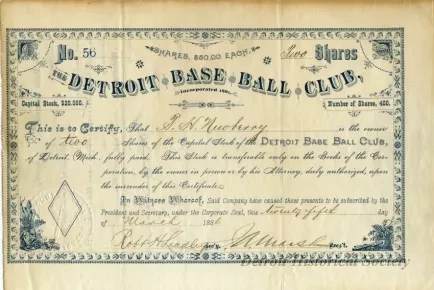 SHARES, $50.00 EACH.
No. 56
Two Shares
THE DETROIT BASE BALL CLUB,
Incorporated
Capital Stock, $20.000.
Number of Shares, 400.
This is to Certify, That T. H. Newberry is the owner
of two Shares of the Capital Stock of the DETROIT BASE BALL CLUB,
of Detroit, Mich., fully paid. This Stock is transferable only on the Books of the Cor-
poration, by the owner in person or by his Attorney, duly authorized, upon
the surrender of this Certificate.
In Witness Whereof, Said Company have caused these presents to be subscribed by the
President and Secretary, under the Corporate Seal, this twenty fifth day
of March 1886
Robt H. Sec'y. Marsh Pres't.
Detroit Historical Society